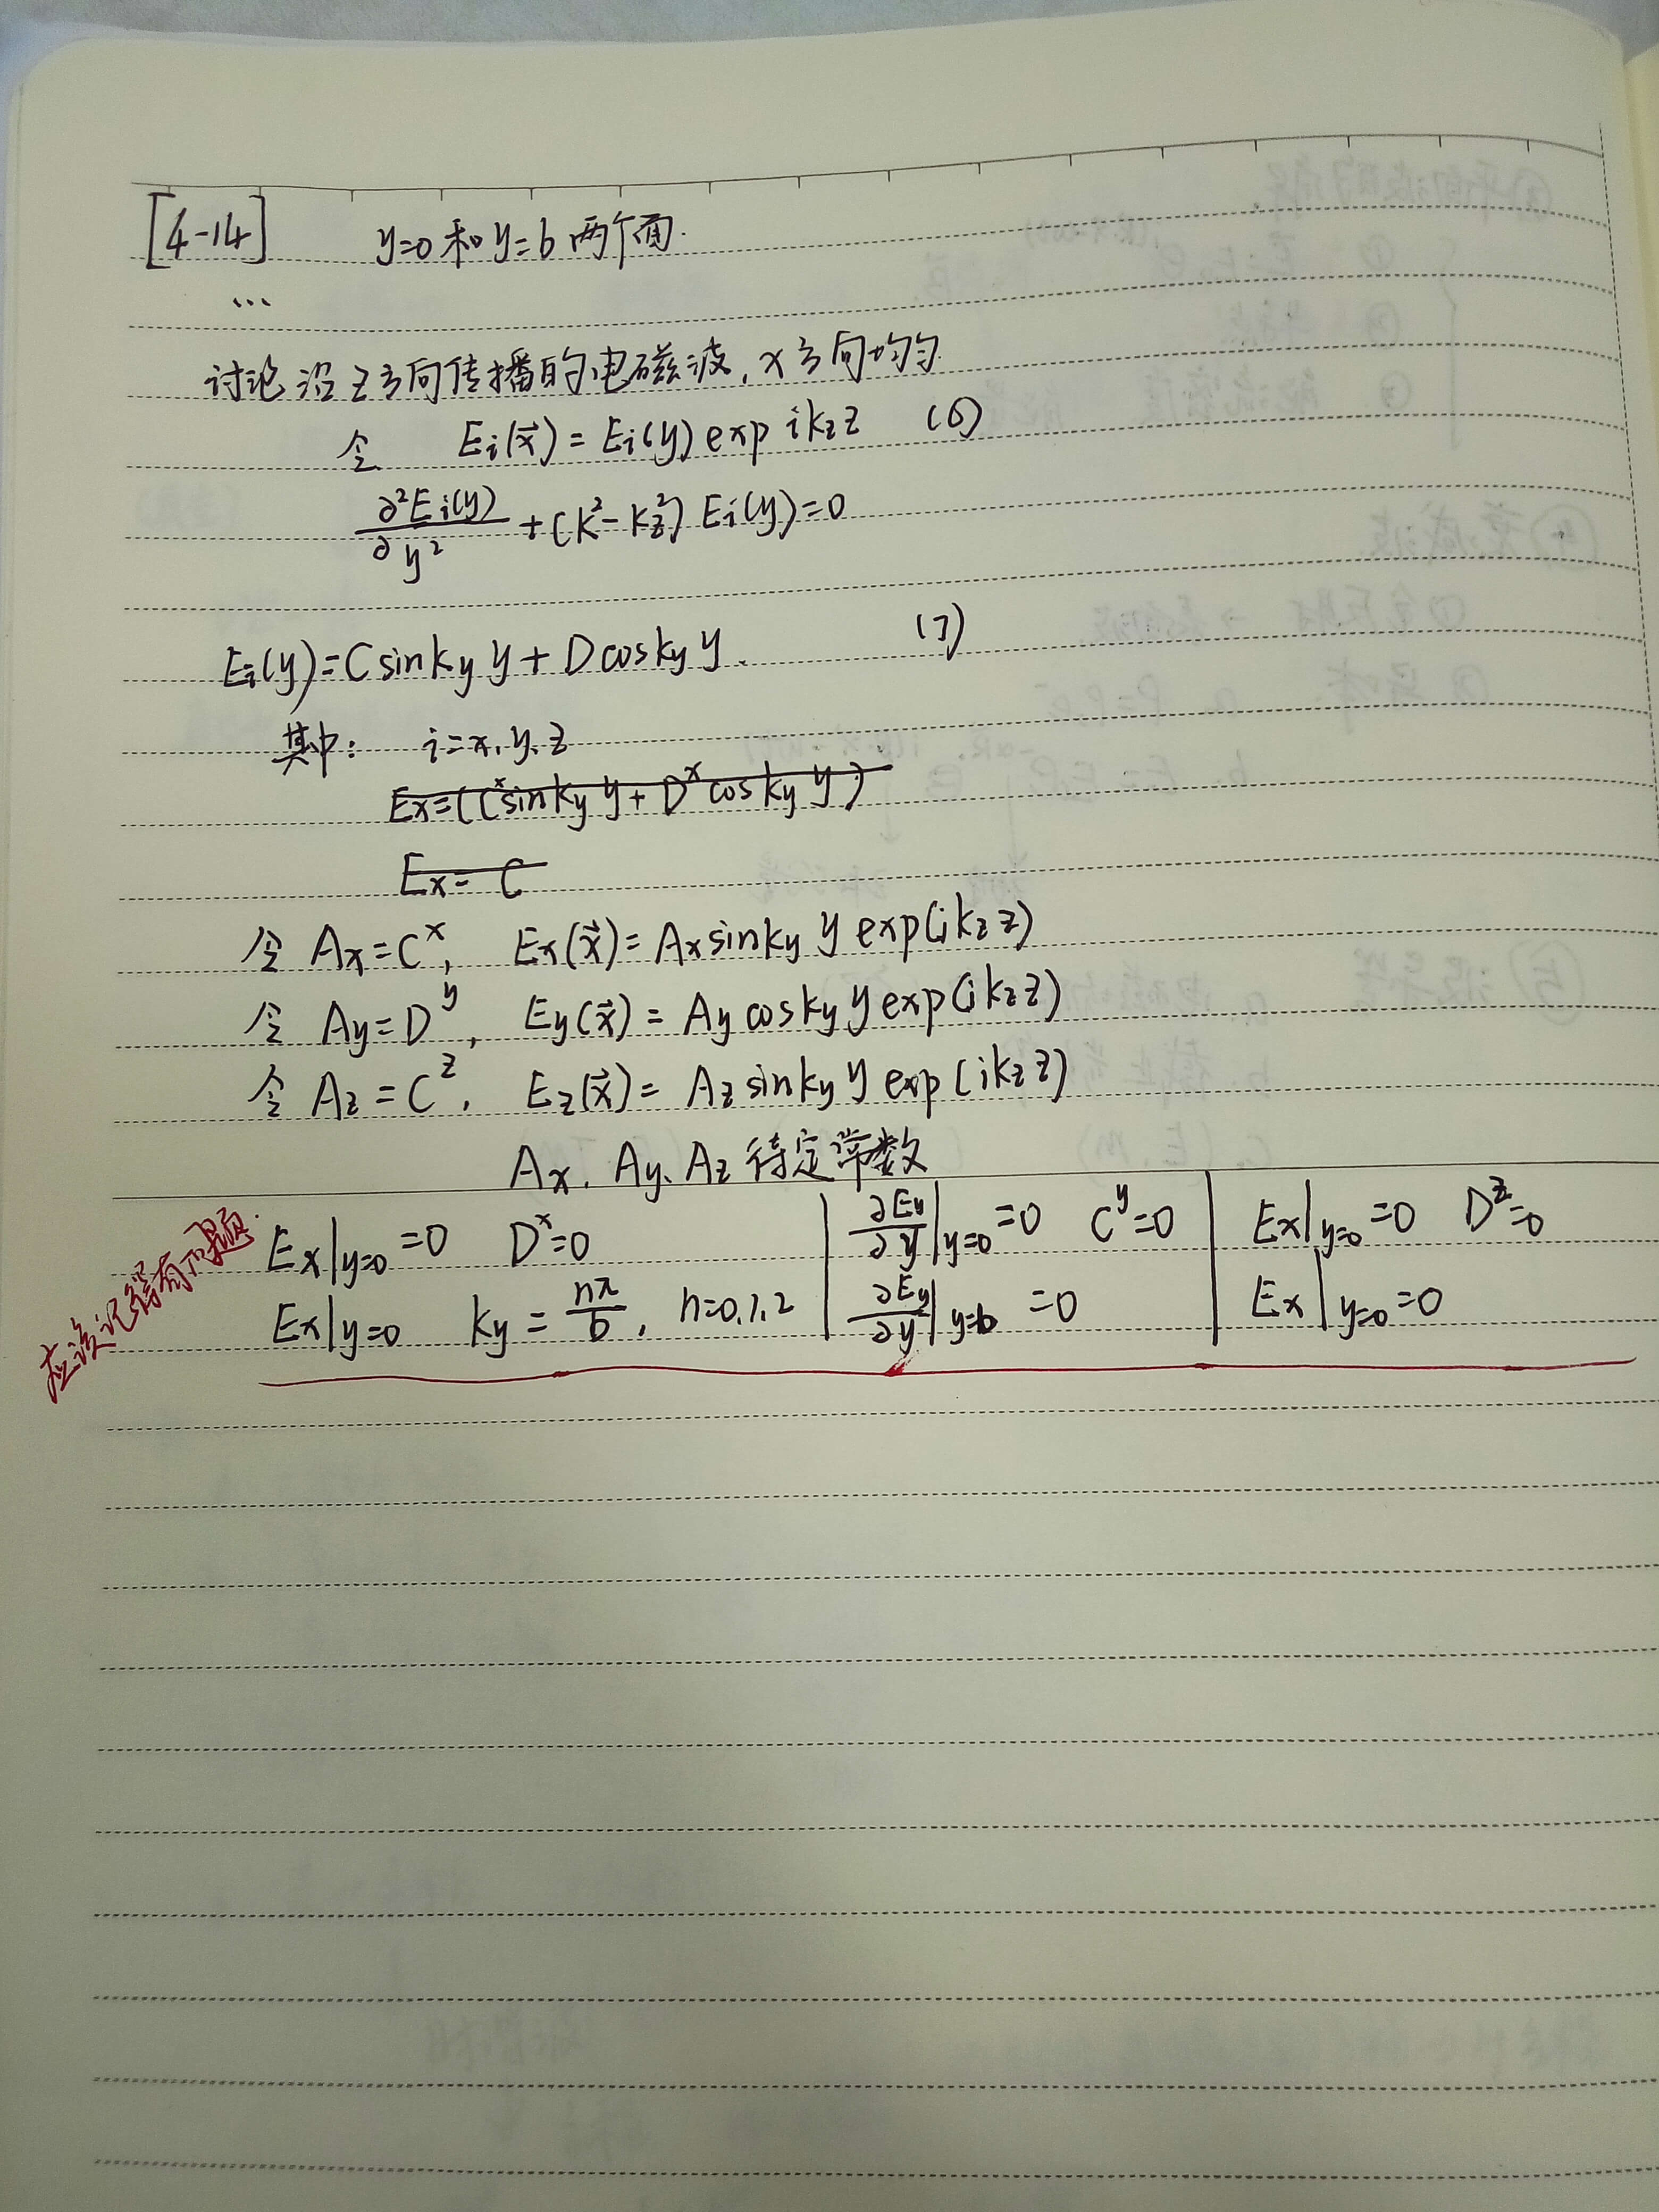 [4-14] y=0和y=b两个面.
...
讨论沿z方向传播的电磁波,x方向均匀.
令 Ei(x⃗)=Ei(y)exp ikzz (6)
∂²Ei(y)/∂y² +(k²-kz²) Ei(y)=0
Ei(y)=Csinkyy+Dcoskyy. (7)
其中: i=x.y.z
Ex=(Cˣsinkyy+Dˣcoskyy)
Ex=C
令 Ax=Cˣ, Ex(x⃗)=Axsinkyy exp(ikzz)
令 Ay=Dʸ, Ey(x⃗)=Aycoskyy exp(ikzz)
令 Az=Cᶻ, Ez(x⃗)=Azsinkyy exp(ikzz)
Ax.Ay.Az待定常数
应该记得有问题.
Ex|y=0=0 Dˣ=0 | ∂Ey/∂y|y=0=0 Cʸ=0 | Ex|y=0=0 Dᶻ=0
Ex|y=0 ky=nπ/b, n=0.1.2 | ∂Ey/∂y|y=b=0 | Ex|y=0=0